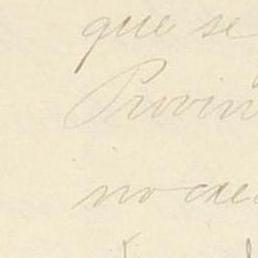 que se
Provin
no cae